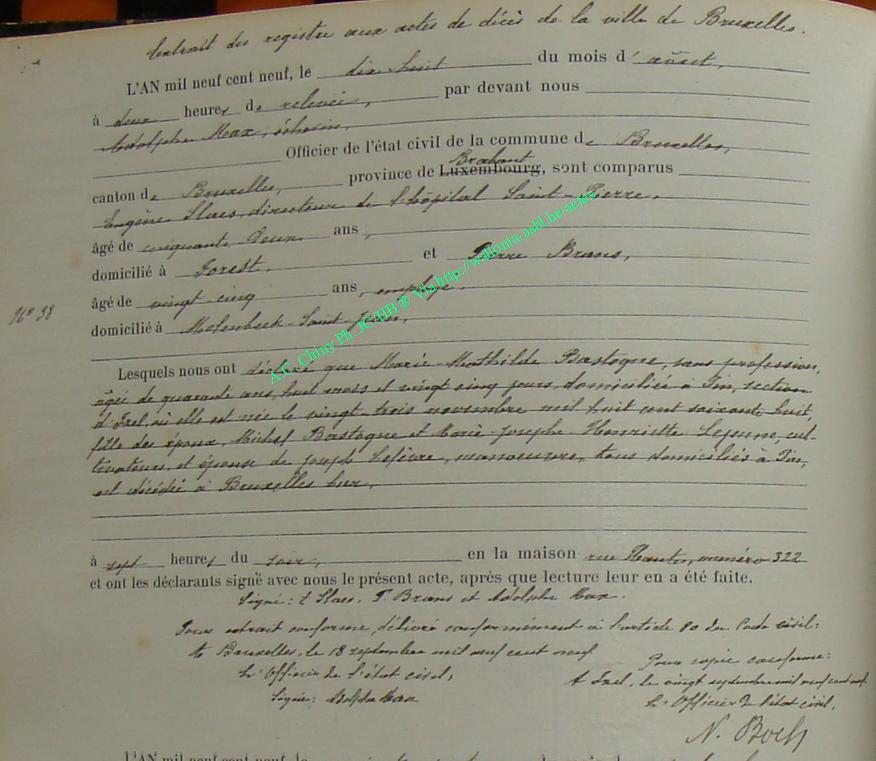 Extrait des registre aux actes de décès de la ville de Bruxelles.
L'AN mil neuf cent neuf, le dix huit du mois d' août,
à deux heures de relevée, par devant nous
Adolphe Max, échevin,
Officier de l'état civil de la commune de Bruxelles,
canton de Bruxelles, province de Luxembourg, sont comparus
Brabant
Eugène Slaes, directeur de l'hôpital Saint-Pierre,
âgé de cinquante deux ans,
domicilié à Forest, et Pierre Brans,
âgé de vingt cinq ans, employé,
N° 38
domicilié à Molenbeek-Saint-Jean,
Lesquels nous ont déclaré que Marie-Mathilde Bastogne, sans profession,
âgée de quarante ans, huit mois et vingt cinq jours, domiciliée à Tin, section
d'Izel, où elle est née le vingt trois novembre mil huit cent soixante huit,
fille des époux, Michel Bastogne et Marie-Josephe-Henriette Lejeune, cul-
tivateurs, et épouse de Joseph Lefèvre, manoeuvre, tous domiciliés à Tin,
est décédée à Bruxelles hier,
à sept heures du soir, en la maison rue Haute, numéro 322
et ont les déclarants signé avec nous le présent acte, après que lecture leur en a été faite.
Signé: E Slaes, P. Brans et Adolphe Max.
Pour extrait conforme, délivré conformément à l'article 80 du Code civil:
A Bruxelles, le 18 septembre mil neuf cent neuf
L'Officier de l'état civil,
Signé: Adolphe Max
Pour copie conforme:
A Izel, le vingt septembre mil neuf cent neuf
L'Officier de l'état civil,
N. Boch
A.C. Chiny Ph. JC HB ® Via http://wallonia-asbl.be/actes
L'AN mil neuf cent neuf, le